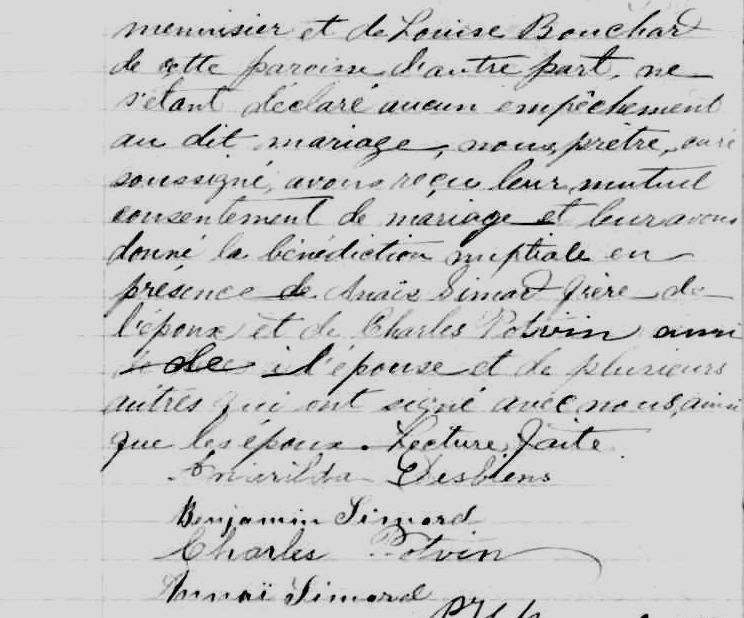 menuisier et de Louise Bouchard
de cette paroisse d'autre part, ne
s'étant déclaré aucun empêchement
au dit mariage, nous, prêtre, curé
soussigné, avons reçu leur mutuel
consentement de mariage et leur avons
donné la bénédiction nuptiale en
présence de Anaïs Simard frère de
l'époux et de Charles Potvin ami
de l'épouse et de plusieurs
autres qui ont signé avec nous, ainsi
que les époux. Lecture faite.
Amarilda Desbiens
Benjamin Simard
Charles Potvin
Annaï Simard